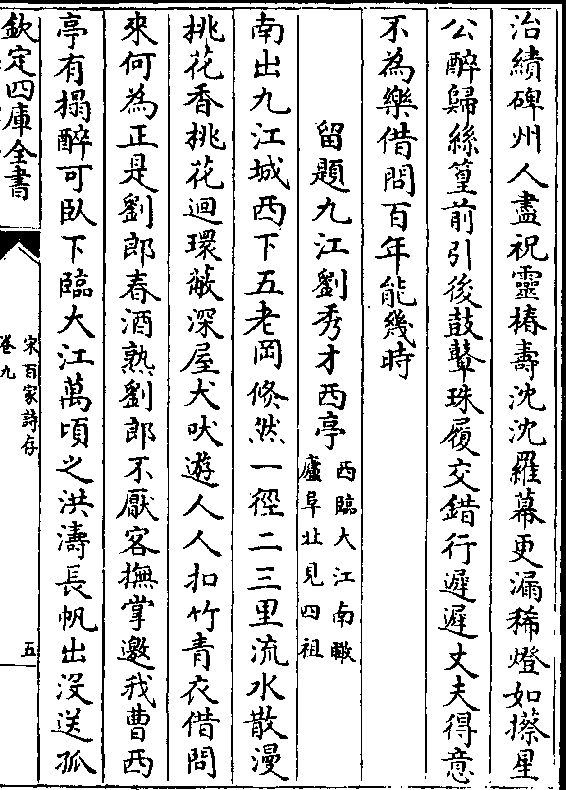 治績碑州人盡祝靈椿壽沈沈羅幕更漏稀燈如擦星
公醉歸絲篁前引後鼓鼙珠履交錯行遲遲丈夫得意
不為樂借問百年能幾時
留題九江劉秀才西亭
西臨大江南瞰
廬阜北見四祖
南出九江城西下五老岡翛然一徑二三里流水散漫
挑花香挑花迴環蔽深屋犬吠遊人人扣竹青衣借問
來何為正是劉郎春酒熟劉郎不厭客撫掌邀我曹西
亭有榻醉可臥下臨大江萬頃之洪濤長帆出沒送孤
欽定四庫全書
宋百家詩存
卷九
五